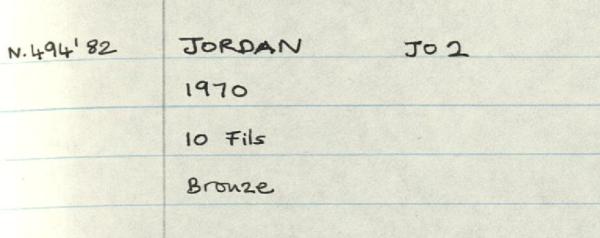 N.494'82 JORDAN JO 2
1970
10 Fils
Bronze